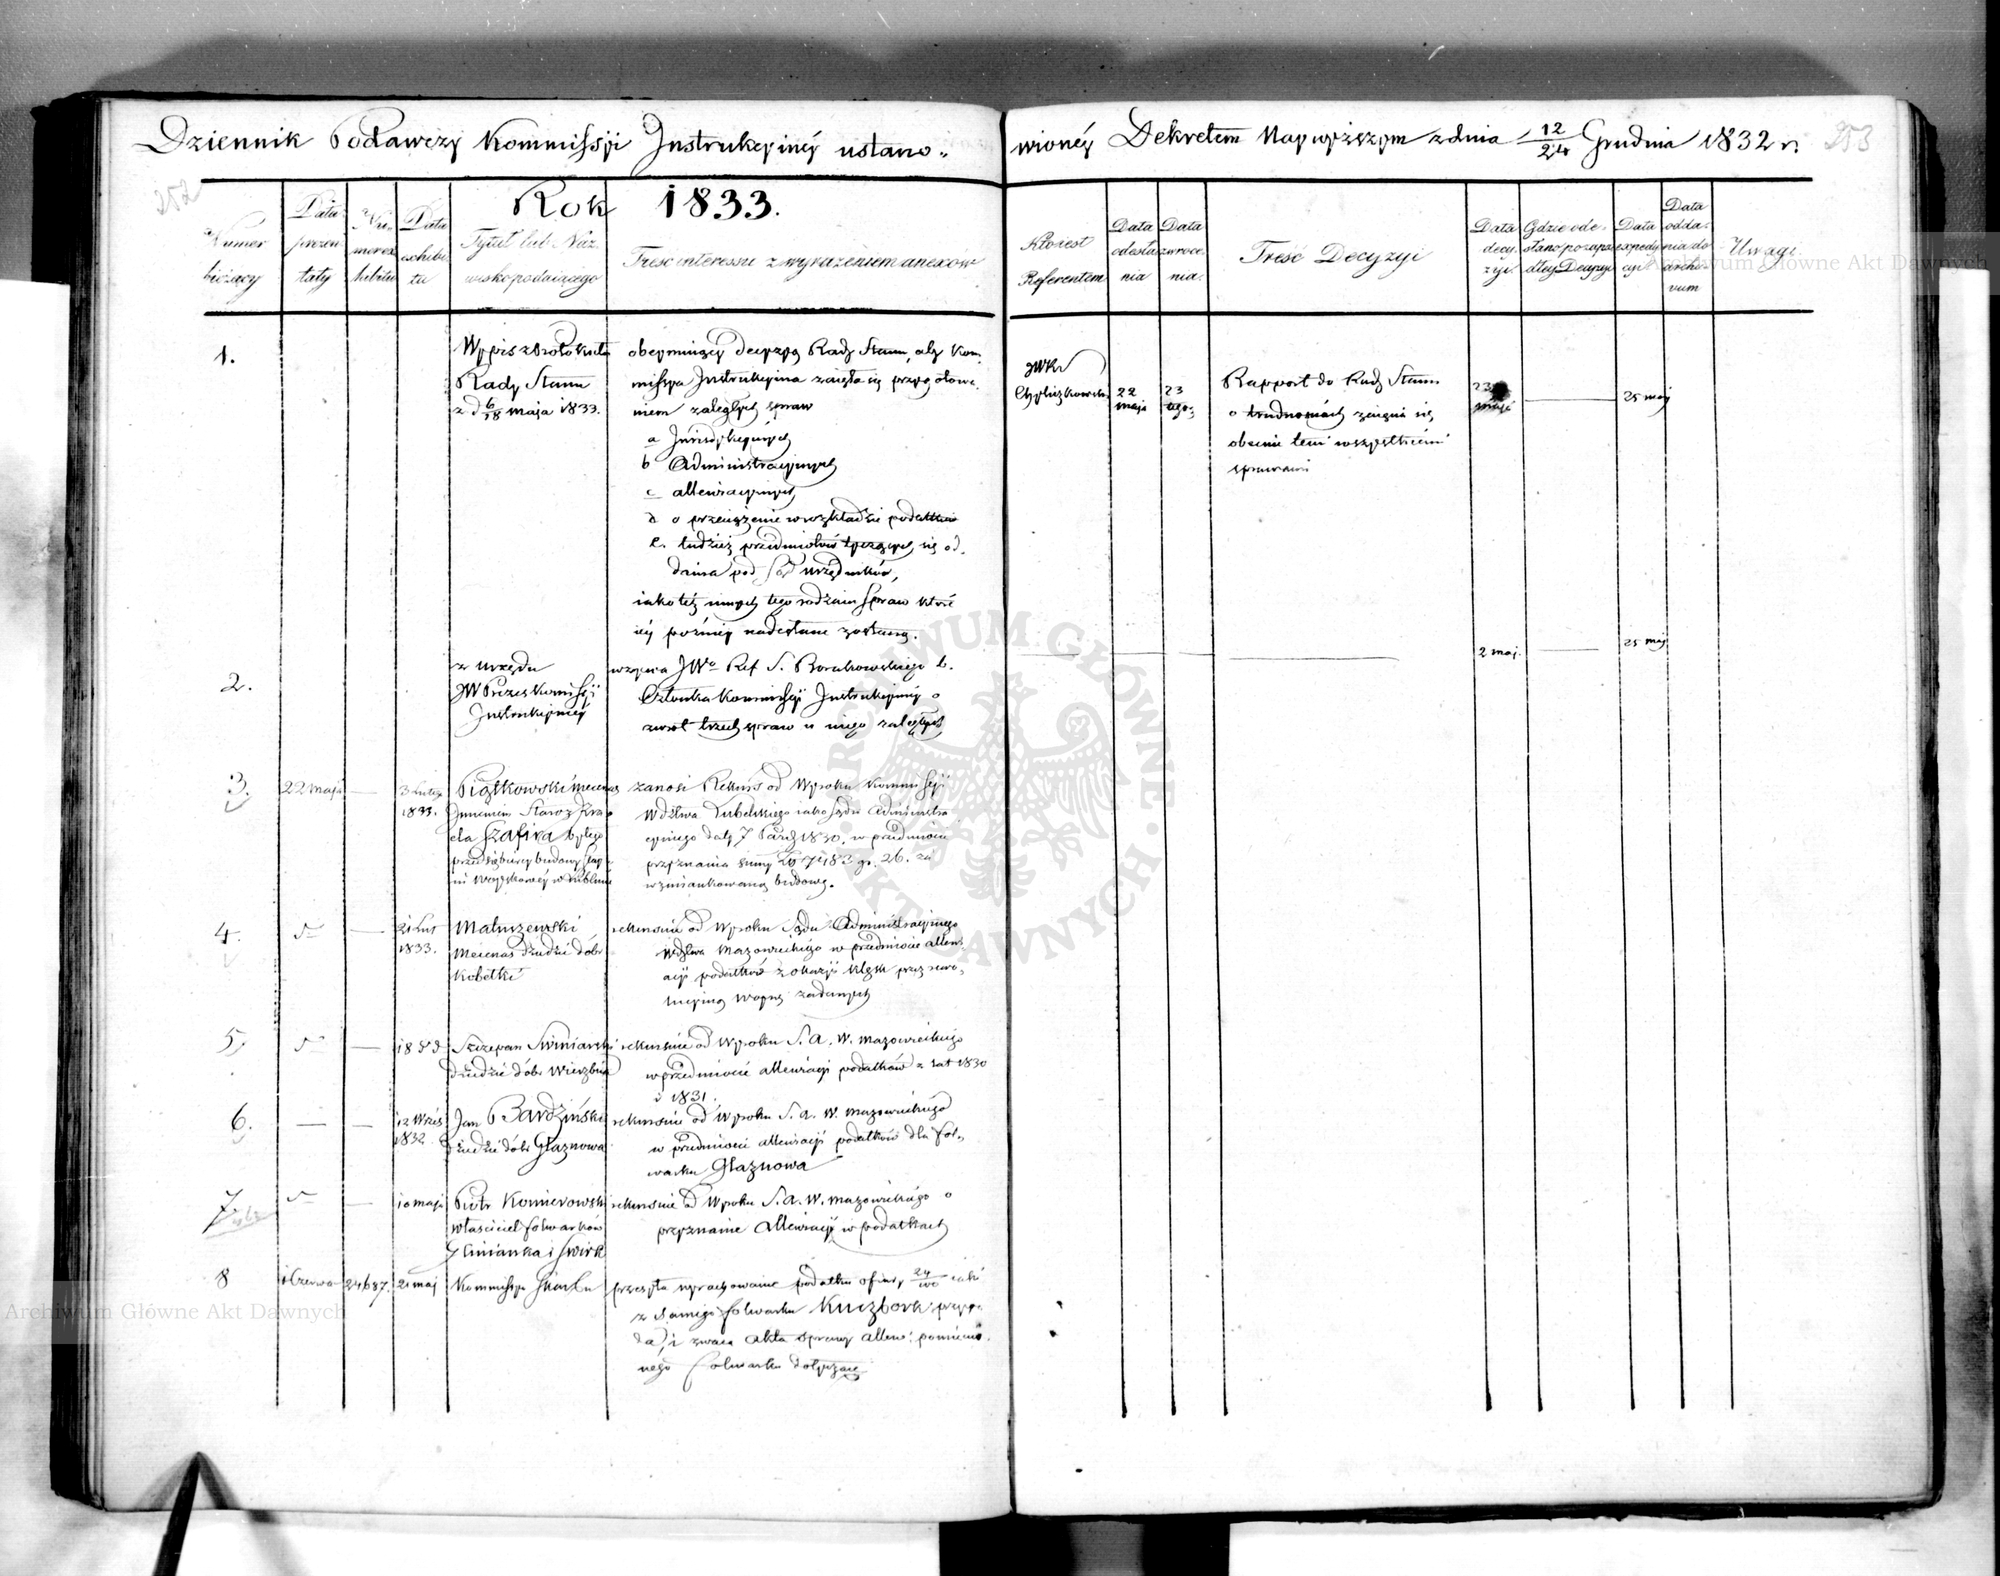 Dziennik Podawczy Kommissyi Instrukcyinéy ustano=
wionéy Dekretem Naywyższym z dnia 12/24 Grudnia 1832 r.
252
253
Rok 1833.
Numer bieżący
Data prezentaty
Numer exhibitu
Data exhibitu
Tytuł lub Nazwisko podaiącego
Treść interessu z wyrażeniem anexów
Kto iest Referentem
Data odesłania
Data zwrocenia
Treść Decyzyi
Data decyzyi
Gdzie odesłano po zapadłey Decyzyi
Data expedycyi
Data oddania do archivum
Uwagi
1.
Wypis z Protokułu
Rady Stanu
z d 6/18 Maja 1833.
obeymuiący decyzyą Rady Stanu, aby Kom=
missya Instrukcyina zaięła się przygotowa=
niem zaległych spraw
a Jurisdykcyinych
b Administracyinych
c allewiacyinych
d o przeciążenie w rozkładzie podatków
e. tudzież przedmiotów tyczących się od=
dania pod Sąd urzędników,
iako też innych tego rodzaiu spraw które
iéy poźniéy nadesłane zostaną.
JW
22 maja
23 tego
Rapport do Rady Stanu
o trudnościach zaięcia się
obecnie temi wszystkiemi
sprawami
23 maja
25 maj
2.
z urzędu
JW Prezes Kommissyi
Instrukcyinéy
wzywa JWo Ref. S. Borakowskiego b.
Członka Kommissyi Instrukcyinéy o
zwrot trzech spraw u niego zaległych
2 maj.
25 maj
3.
22 maja
3 Lutego
1833.
Piątkowski mecenas
Imieniem Staroz.
ela Szafira byłego
przedsiębiercy budowy
w Lublinie
zanosi Rekurs od Wyroku Kommissyi
Wdztwa Lubelskiego iako Sądu Administra
cyinego daty 7 Paźdz 1830. w przedmiocie
przyznania summy Zp 7183 gr. 26. za
wzmiankowaną budowę.
4.
21 Lut
1833.
Matuszewski
Mecenas dziedzic dobr
Kobełki
rekursuie od Wyroku Sądu Administracyinego
Wdztwa Mazowieckiego w przedmiocie allewi=
acyi podatków z okazyi klęsk przez rewo=
lucyiną woynę zadanych
5.
18 d d
Szczepan Swiniarski
dziedzic dóbr Wierzbna
rekursuie od Wyroku S. A. W. Mazowieckiego
w przedmiocie allewiacyi podatków z lat 1830
i 1831.
6.
12 Wrześ
1832
Jan Bardziński
dziedzic dóbr Głaznowa
rekursuie od Wyroku S. A. W. Mazowieckiego
w przedmiocie allewiacyi podatków dla Fol=
warku Głaznowa
7.
10 maja
Piotr Komierowski
właściciel folwarków
Glinianka i Swirk
rekursuie od Wyroku S. A. W. Mazowieckiego o
przyznanie allewiacyi w podatkach
8
1 Czerwca
24,687.
21 maj
Kommissya Skarbu
przesyła wyrachowanie podatku ofiary 24/100 iaki
z samego folwarku Kuczbork przypa=
da, i zwraca akta sprawy allew: pomienio=
nego folwarku dotyczące
ARCHIWUM GŁÓWNE AKT DAWNYCH
Archiwum Główne Akt Dawnych
Archiwum Główne Akt Dawnych